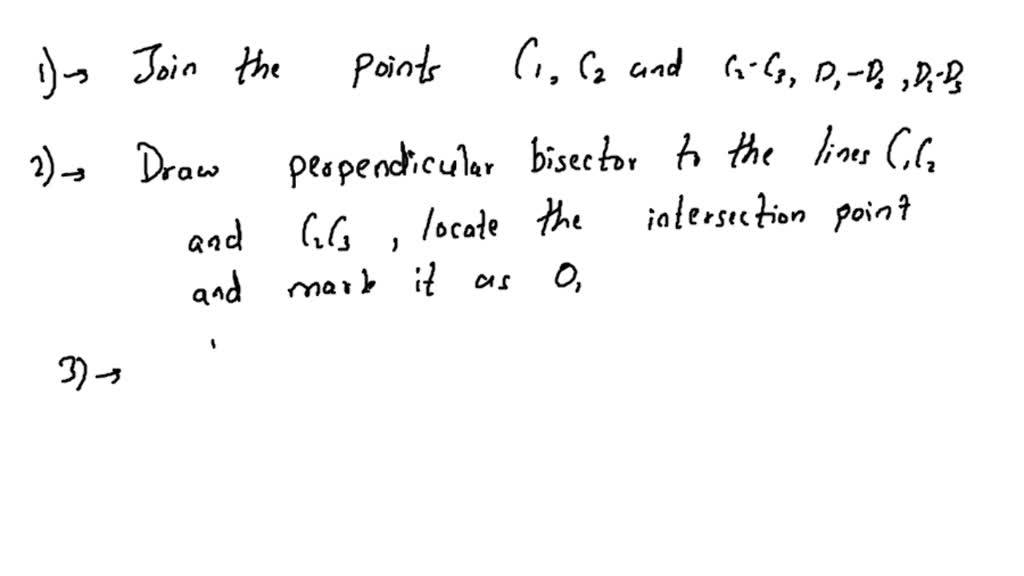 1)→ Join the points C1, C2 and C2-C3, D1-D2, D2-D3
2)→ Draw perpendicular bisector to the lines C1C2
and C2C3, locate the intersection point
and mark it as O1
3)→